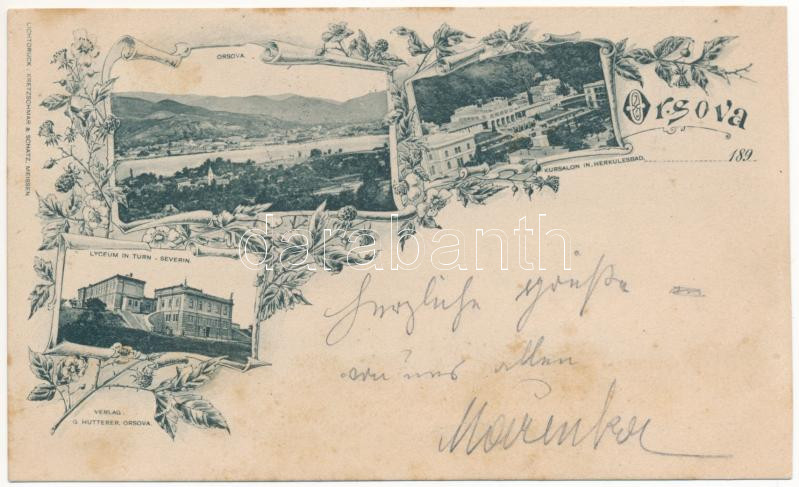 ORSOVA.
Orsova
KURSALON IN HERKULESBAD.
189
LYCEUM IN TURN - SEVERIN.
LICHTDRUCK: KRETZSCHMAR & SCHATZ, MEISSEN
darabanth
Herzliche Grüße
von uns allen
Marenka
VERLAG.
G. HUTTERER, ORSOVA.